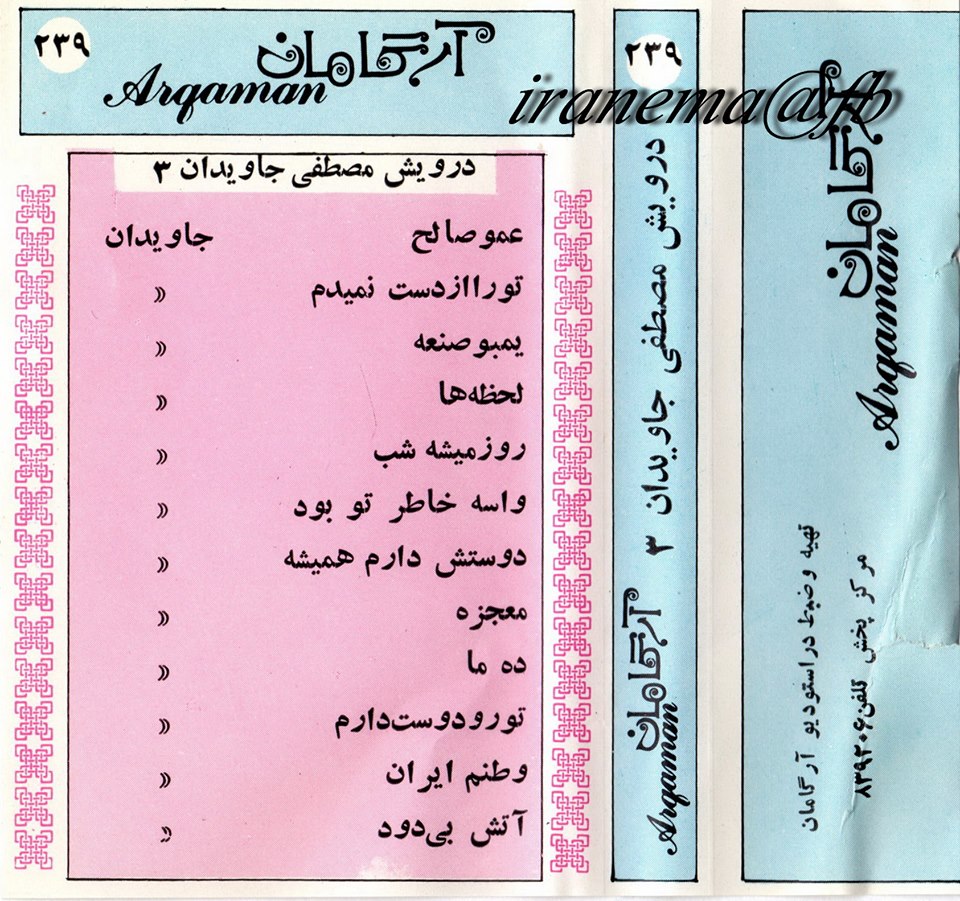 ۲۳۹
آرگامان
Arqaman
درویش مصطفی جاویدان ۳
عموصالح جاویدان
توراازدست نمیدم »
یمبوصنعه »
لحظه‌ها »
روزمیشه شب »
واسه خاطر تو بود »
دوستش دارم همیشه »
معجزه »
ده ما »
تورودوست‌دارم »
وطنم ایران »
آتش بی‌دود »
۲۳۹
درویش مصطفی جاویدان ۳
آرگامان
Arqaman
iranema@fb
آرگامان
Arqaman
تهیه وضبط دراستودیو آرگامان
مرکز پخش تلفن ۸۳۹۲۰۶